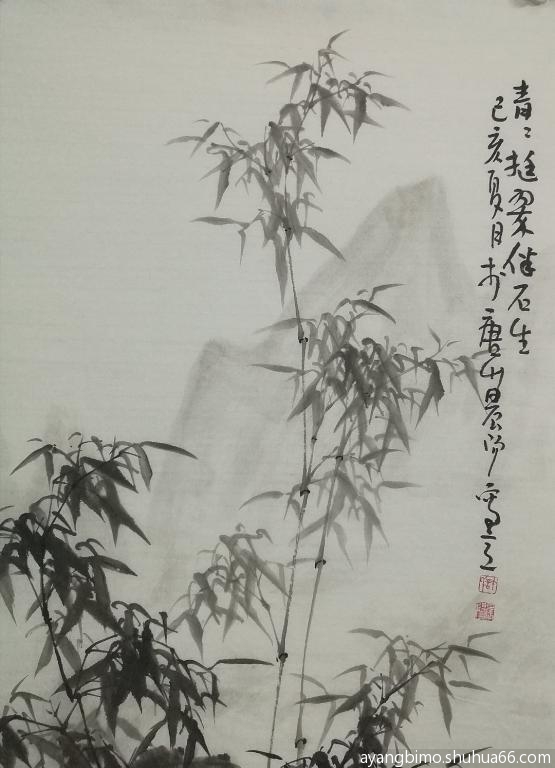 青々挺翠伴石生
己亥夏月于唐山晨
ayangbimo.shuhua66.com